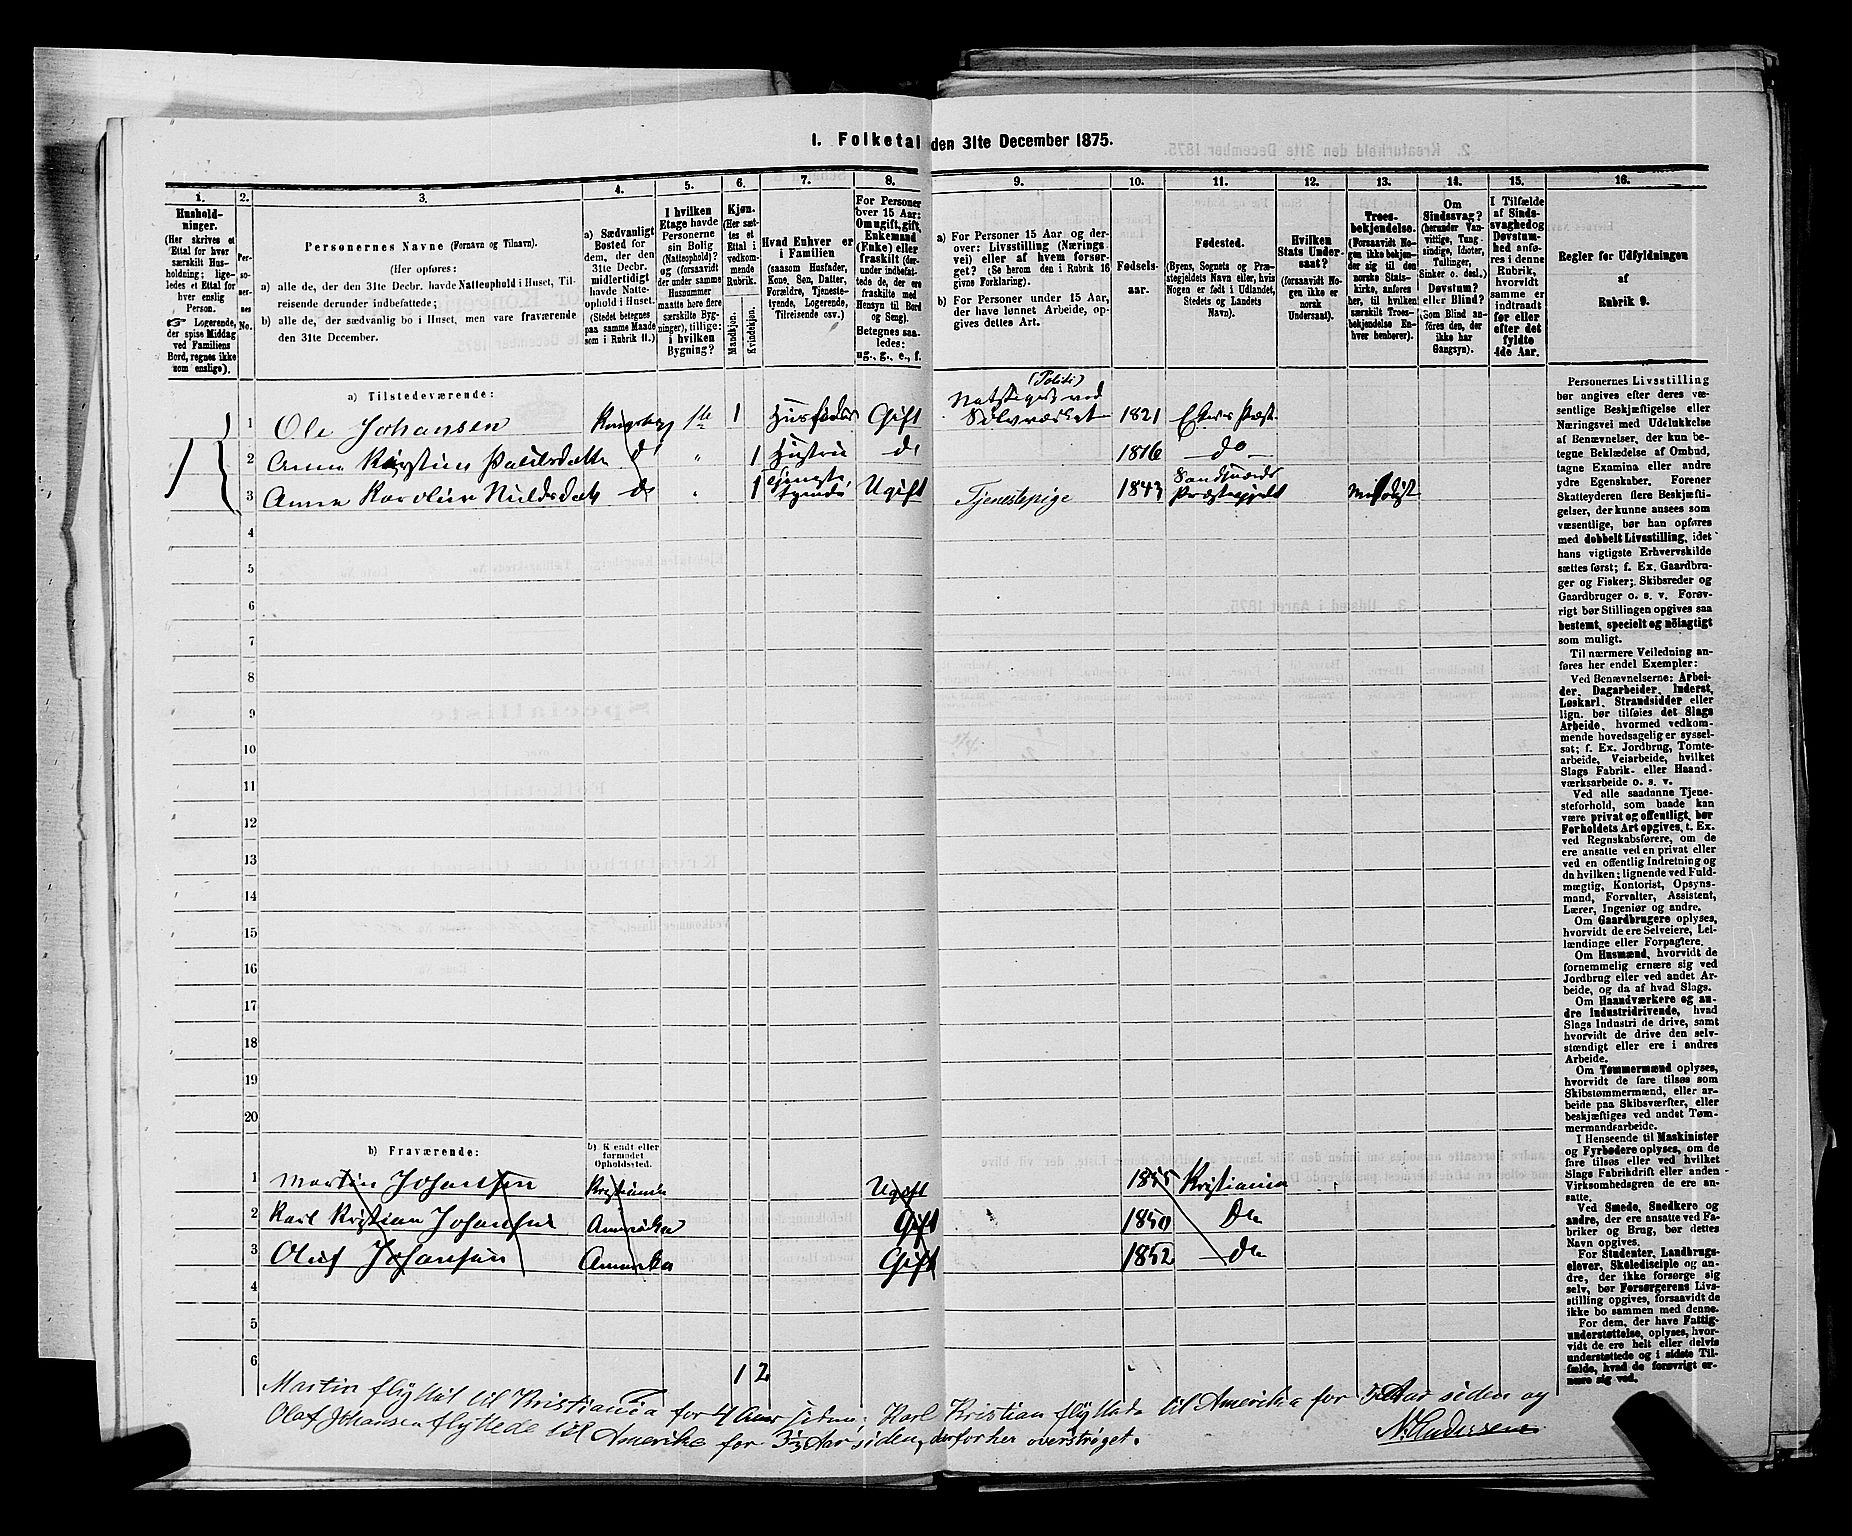 1. Folketal den 31te December 1875.
1. 2. 3. 4. 5. 6. 7. 8. 9. 10. 11. 12. 13. 14. 15. 16.
Hushold-
ninger.
(Her skrives et
Ettal for hver
særskilt Hus-
holdning; lige-
ledes et Ettal for
hver enslig
Person.
☞ Logerende,
der spise Middag
ved Familiens
Bord, regnes ikke
som enslige).
Per-
so-
ner-
nes
No.
Personernes Navne (Fornavn og Tilnavn).
(Her opføres:
a) alle de, der den 31te Decbr. havde Natteophold i Huset, Til-
reisende derunder indbefattede;
b) alle de, der sædvanlig bo i Huset, men vare fraværende
den 31te December.
a) Sædvanligt
Bosted for
dem, der den
31te Decbr.
midlertidigt
havde Natte-
ophold i Huset.
(Stedet betegnes
paa samme Maade
som i Rubrik 11.)
I hvilken
Etage havde
Personerne
sin Bolig
(Natteophold)?
og (forsaavidt
der under samme
Husnummer
maatte høre flere
særskilte Byg-
ninger), tillige:
i hvilken
Bygning?
Kjøn.
(Her sæt-
tes et
Ettal i
vedkom-
mende
Rubrik.
Mandkjøn.
Kvindekjøn.
Hvad Enhver er
i Familien
(saasom Husfader,
Kone, Søn, Datter,
Forældre, Tjeneste-
tyende, Logerende,
Tilreisende osv.)
For Personer
over 15 Aar:
Om ugift, gift,
Enkemand
(Enke) eller
fraskilt (der-
under indbefat-
tede de, der ere
fraskilte med
Hensyn til Bord
og Seng).
Betegnes saa-
ledes:
ug., g., e., f.
a) For Personer 15 Aar og der-
over: Livsstilling (Nærings-
vei) eller af hvem forsør-
get? (Se herom den i Rubrik 16
givne Forklaring).
b) For Personer under 15 Aar,
der have lønnet Arbeide, op-
gives dettes Art.
Fødsels-
aar.
Fødested.
(Byens, Sognets og Præ-
stegjeldets Navn eller, hvis
Nogen er født i Udlandet,
Stedets og Landets
Navn).
Hvilken
Stats Under-
saat?
(forsaavidt No-
gen ikke er
norsk
Undersaat).
Troes-
bekjendelse.
(Forsaavidt No-
gen ikke bekjen-
der sig til den
norske Stats-
kirke, anføres
her, til hvilken
særskilt Troes-
bekjendelse En-
hver henhører).
Om
Sindssvag?
(herunder Van-
vittige, Tung-
sindige, Idioter,
Tullinger,
Sinker o. desl.)
Døvstum?
eller Blind?
(Som Blind an-
føres den, der
ikke har
Gangsyn).
I Tilfælde
af Sinds-
svaghed og
Døvstum-
hed anfø-
res i denne
Rubrik,
hvorvidt
samme er
indtraadt
før eller
efter det
fyldte
4de Aar.
Regler for Udfyldningen
af
Rubrik 9.
a) Tilstedeværende:
1 Ole Johansen Kongsberg 1te 1 Husfader Gift (Politi) ved Sølvværket 1821 Eker Præst
2 Anna Kirstine do " 1 Hustrue do 1816 do
3 Anna Karoline do " 1 Tjeneste tyende Ugift Tjenestepige 1843 Sandsværds Præstegjeld
4
5
6
7
8
9
10
11
12
13
14
15
16
17
18
19
20
b) Fraværende:
b) Kjendt eller
formodet
Opholdssted.
1 Martin Johansen Kristiania Ugift 1855 Kristiania
2 Karl Kristian Johansen Amerika Gift 1850 Do
3 Oluf Johansen Amerika Gift 1852 Do
4
5
6
1 2
Martin flyttet til Kristiania for 4 Aar siden; Karl Kristian flyttede til Amerika for 5 Aar siden og
Olaf Johansen flyttede til Amerika for 3½ Aar siden, derfor her overstrøget.
N. Andersen
Personernes Livsstilling
bør angives efter deres væ-
sentlige Beskjæftigelse eller
Næringsvei med Udelukkelse
af Benævnelser, der kun be-
tegne Beklædelse af Ombud,
tagne Examina eller andre
ydre Egenskaber. Forener
Skatteyderen flere Beskjæfti-
gelser, der kunne ansees som
væsentlige, bør han opføres
med dobbelt Livsstilling, idet
hans vigtigste Erhvervskilde
sættes først; f. Ex. Gaardbru-
ger og Fisker; Skibsreder og
Gaardbruger o. s. v. Forøv-
rigt bør Stillingen opgives saa
bestemt, specielt og nöiagtigt
som muligt.
Til nærmere Veiledning an-
føres her endel Exempler:
Ved Benævnelserne: Arbei-
der, Dagarbeider, Inderst,
Løskarl, Strandsidder eller
lign. bør tilføies det Slags
Arbeide, hvormed vedkom-
mende hovedsagelig er syssel-
sat; f. Ex. Jordbrug, Tomte-
arbeide, Veiarbeide, hvilket
Slags Fabrik- eller Haand-
værksarbeide o. s. v.
Ved alle saadanne Tje-
nesteforhold, som baade kan
være privat og offentligt, bør
Forholdets Art opgives, t. Ex.
ved Regnskabsførere, om de
ere ansatte ved en privat eller
ved en offentlig Indretning og
da hvilken; lignende ved Fuld-
mægtig, Kontorist, Opsyns-
mand, Forvalter, Assistent,
Lærer, Ingeniør og andre.
Om Gaardbrugere oplyses,
hvorvidt de ere Selveiere, Lei-
lændinge eller Forpagtere.
Om Husmænd, hvorvidt de
fornemmelig ernære sig ved
Jordbrug eller ved andet Ar-
beide, og da af hvad Slags.
Om Haandværkere og an-
dre Industridrivende, hvad
Slags Industri de drive, samt
hvorvidt de drive den selv-
stændigt eller ere i andres
Arbeide.
Om Tømmermænd oplyses,
hvorvidt de fare tilsøs som
Skibstømmermænd, eller ar-
beide paa Skibsværfter, eller
beskjæftiges ved andet Tøm-
mermandsarbeide.
I Henseende til Maskinister
og Fyrbødere oplyses, om de
fare tilsøs eller ved hvilket
Slags Fabrikdrift eller anden
Virksomhedsgren de ere an-
satte.
Ved Smede, Snedkere og
andre, der ere ansatte ved Fa-
briker og Brug, bør dettes
Navn opgives.
For Studenter, Landbrugs-
elever, Skoledisciple og an-
dre, der ikke forsørge sig
selv, bør Forsørgerens Livs-
stilling opgives, forsaavidt de
ikke bo sammen med denne.
For dem, der have Fattig-
understøttelse, oplyses, hvor-
vidt de ere helt eller delvis
understøttede og i sidste Til-
fælde, hvad de forøvrigt er-
nære sig ved.